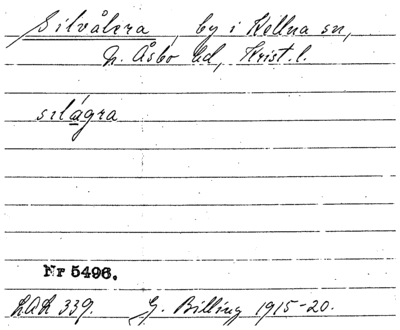 Silvåkra, by i Hellna sn,
N. Åsbo hd, Krist. l.
szlágra
Nr 5496.
LAL 339. G. Billing 1915-20.